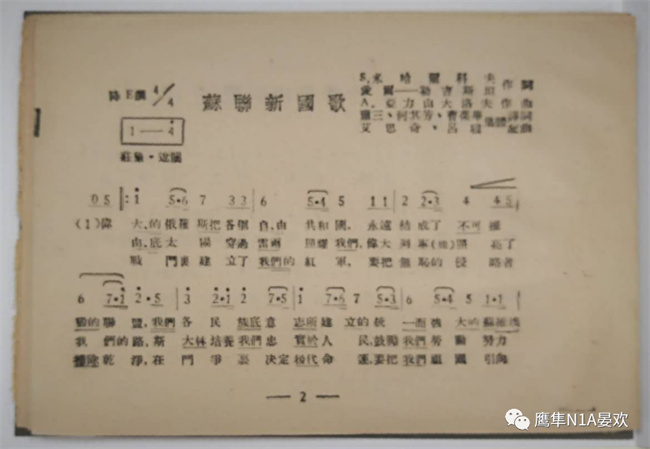 蘇聯新國歌
降E調 4/4
1—4
莊嚴·速闊
S,米哈爾科夫 作詞
愛爾——勒吉斯坦
A.亞力山大洛夫作曲
蕭三、何其芳、曹葆華 譯詞
艾思奇、呂驥 配曲
0 5 1 5·6 7 3 3 6 5·4 5 1 2 2·3 4 4 5
(1)偉大,的俄羅斯把各個自,由共和國,永遠結成了不可摧
由,底太陽穿過雷雨照耀我們,偉大列寧(他)照亮了
戰鬥裏建立了我們的紅軍,要把無恥的侵略者
6 7·1 2·5 3 2·1 2 7·5 1 7·6 7 5·3 6 5·4 5 1·1
的聯盟,我們各民族底意志所建立的統一而強大的蘇維埃
我們的路,斯大林培養我們忠實於人民,鼓勵我們勞動努力
乾淨,在鬥爭裏決定後代命運,要把我們祖國引向
— 2 —
鹰隼N1A晏欢